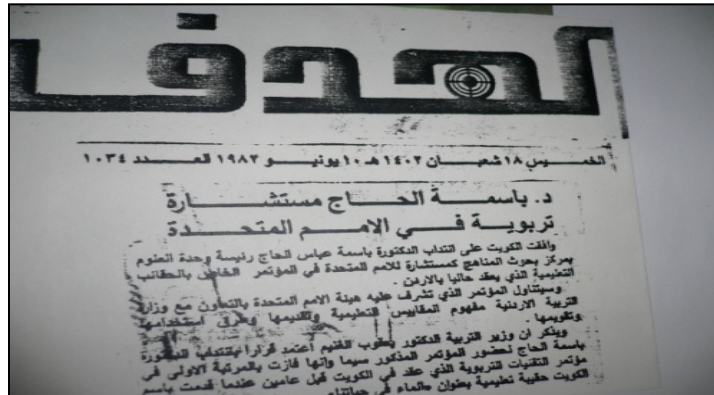 الهدف
الخميس ١٨ شعبان ١٤٠٢ هـ ١٠ يونيو ١٩٨٢ العدد ١٠٣٤
د. باسمة الحاج مستشارة
تربوية في الامم المتحدة
وافقت الكويت على انتداب الدكتورة باسمة عباس الحاج رئيسة وحدة العلوم
بمركز بحوث المناهج كمستشارة للامم المتحدة في المؤتمر الخاص بالحقائب
التعليمية الذي يعقد حاليا بالاردن .
وسيتناول المؤتمر الذي تشرف عليه هيئة الامم المتحدة بالتعاون مع وزارة
التربية الاردنية مفهوم المقاييس التعليمية وتقديمها وطرق استخدامها
وتقويمها .
ويذكر ان وزير التربية الدكتور يعقوب الغنيم اعتمد قرارا بانتداب الدكتورة
باسمة الحاج لحضور المؤتمر المذكور سيما وانها فازت بالمرتبة الاولى في
مؤتمر التقنيات التربوية الذي عقد في الكويت قبل عامين عندما قدمت باسم
الكويت حقيبة تعليمية بعنوان «الماء في حياتنا»